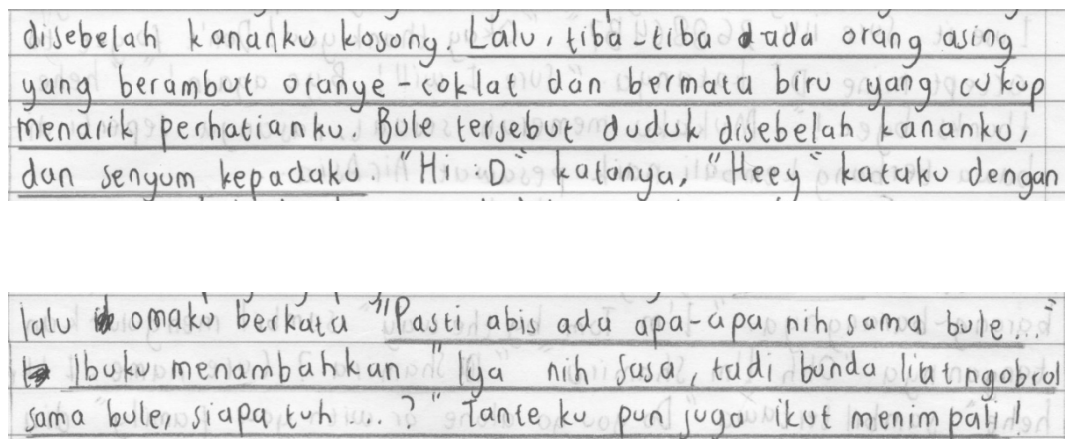 disebelah kananku kosong. Lalu, tiba-tiba ada orang asing
yang berambut oranye-coklat dan bermata biru yang cukup
menarik perhatianku. Bule tersebut duduk disebelah kananku,
dan senyum kepadaku. "Hi :D" katanya, "Heey" kataku dengan
lalu omaku berkata "Pasti abis ada apa-apa nih sama bule..."
Ibuku menambahkan "Iya nih Sasa, tadi bunda liat ngobrol
sama bule, siapa tuh...?" Tante ku pun juga ikut menimpali